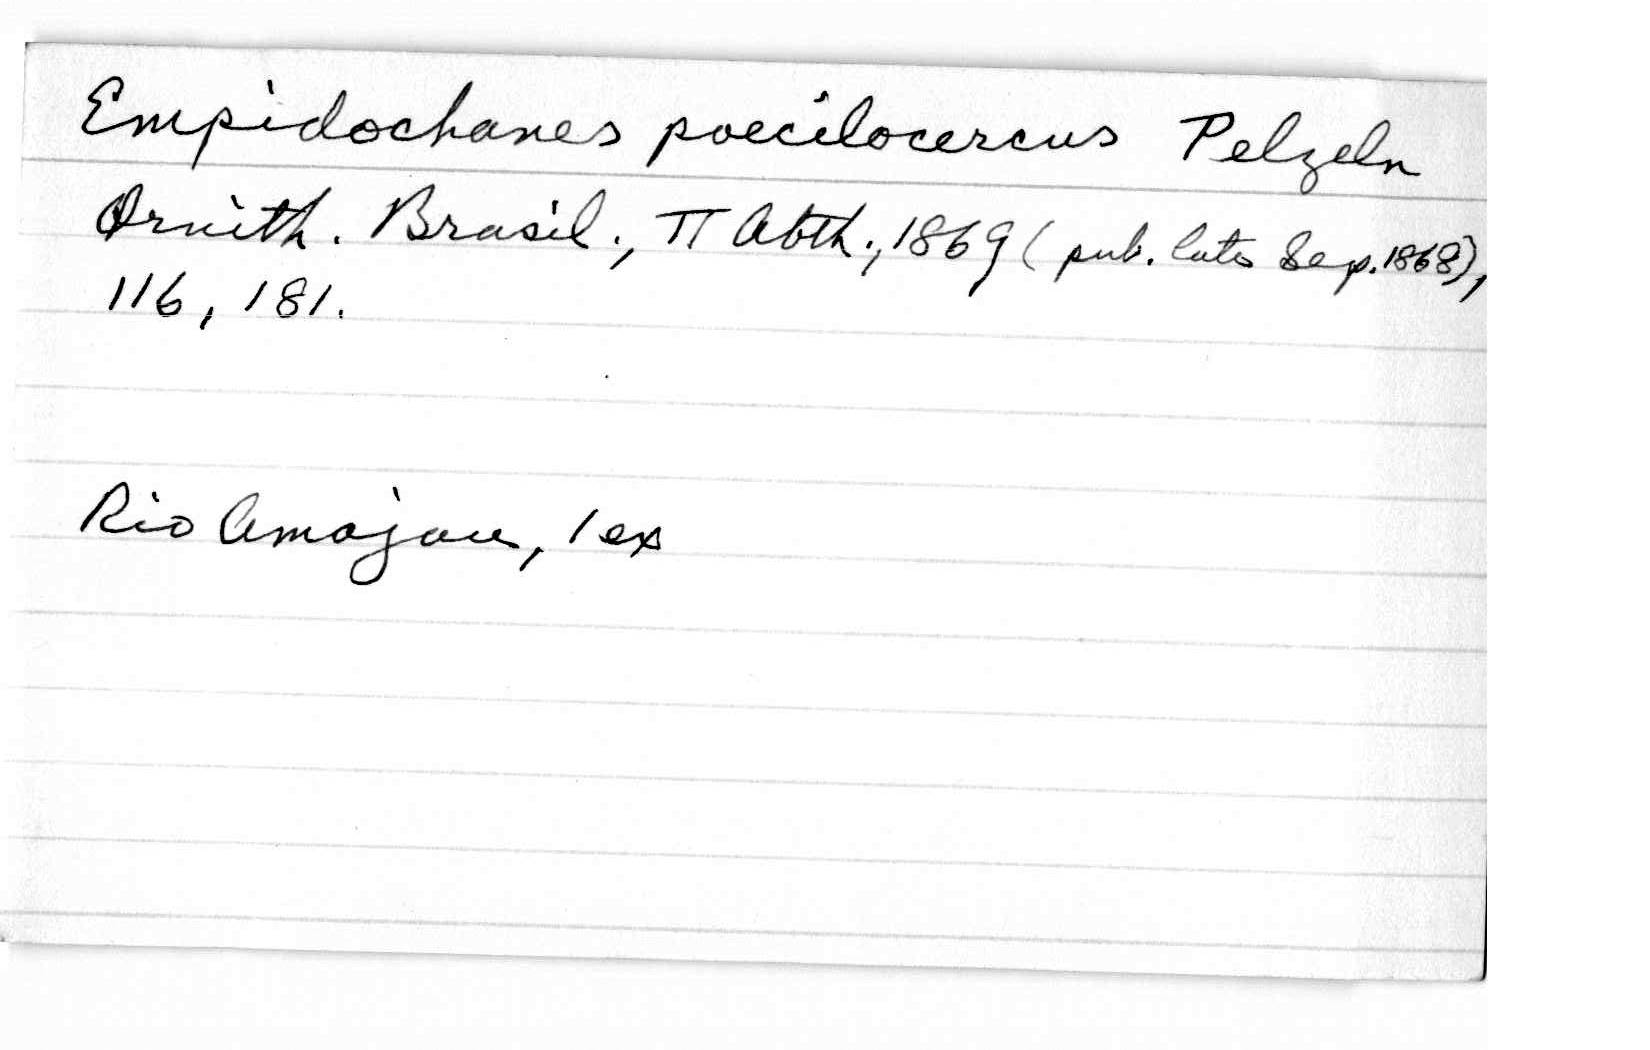 Empidochanes poecilocercus Pelzeln
Ornith. Brasil., II Abth., 1869 (pub. late Sep. 1868),
116, 181.
Rio Amajau, 1 ex